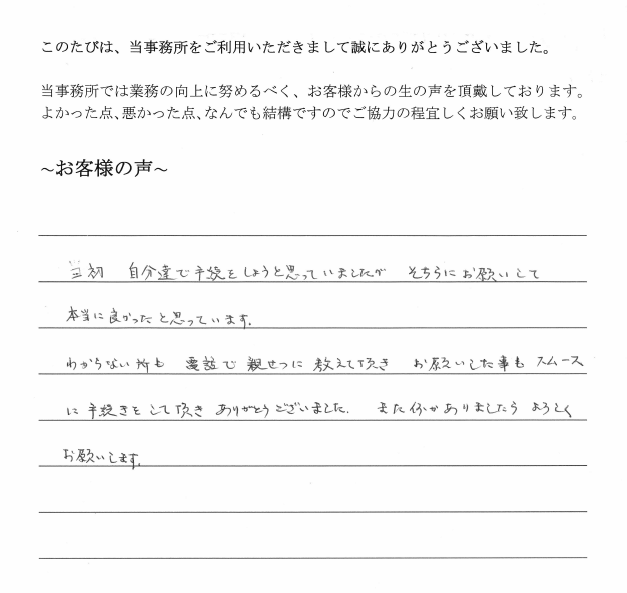 このたびは、当事務所をご利用いただきまして誠にありがとうございました。
当事務所では業務の向上に努めるべく、お客様からの生の声を頂戴しております。
よかった点、悪かった点、なんでも結構ですのでご協力の程宜しくお願い致します。
～お客様の声～
当初 自分達で手続をしようと思っていましたが そちらにお願いして
本当に良かったと思っています。
わからない所も 電話で 親せつに 教えて頂き お願いした事も スムース
に 手続きをして頂き ありがとうございました。 また何かありましたら よろしく
お願いします。